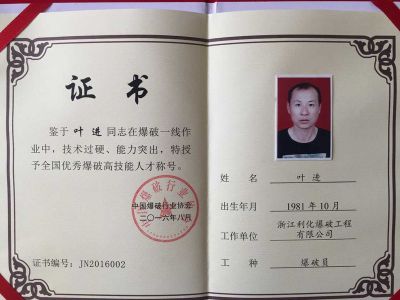 证书
鉴于 叶 进 同志在爆破一线作
业中，技术过硬、能力突出，特授
予全国优秀爆破高技能人才称号。
中国爆破行业协会
二〇一六年八月
证书编号：JN2016002
姓 名 叶 进
出生年月 1981年10月
工作单位 浙江利化爆破工程
有限公司
工 种 爆破员